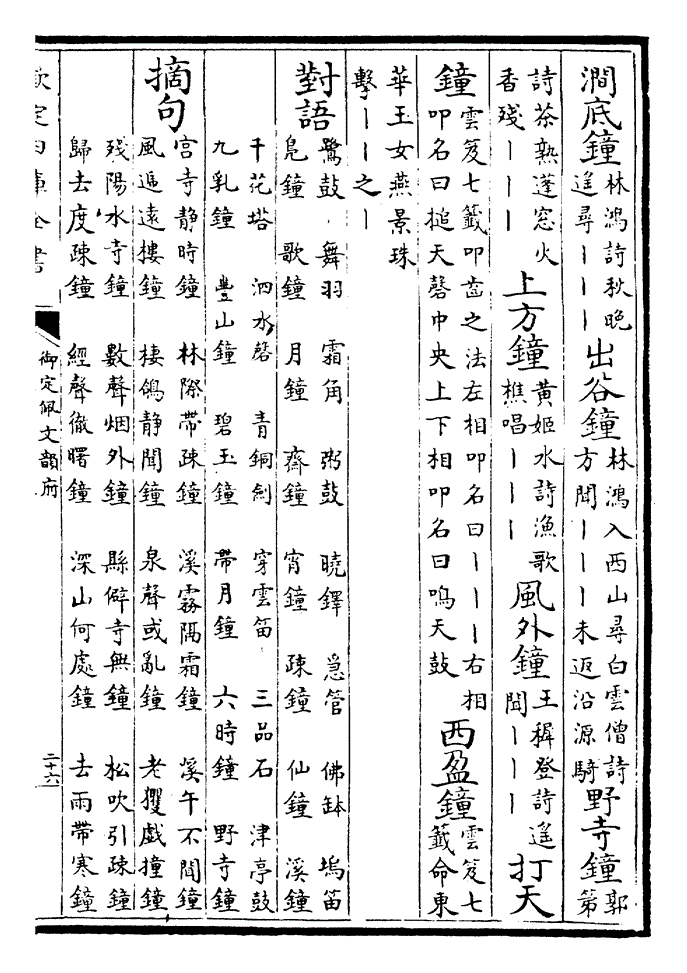 澗底鐘林鴻詩秋晚遥尋丨丨丨出谷鐘林鴻入西山尋白雲僧詩方聞丨丨丨未返沿源騎野寺鐘郭第
詩茶熟蓬窓火香殘丨丨丨上方鐘黄姬水詩漁歌樵唱丨丨丨風外鐘王穉登詩遥聞丨丨丨打天
鐘雲笈七籤叩齒之法左相叩名曰丨丨丨右相叩名曰搥天磬中央上下相叩名曰鳴天鼓西盈鐘雲笈七籤命東
華玉女燕景珠擊丨丨之丨
對語
鷺鼓 舞羽 霜角 粥鼓 曉鐸 急管 佛鉢 塢笛
鳬鐘 歌鐘 月鐘 齋鐘 宵鐘 疎鐘 仙鐘 溪鐘
千花塔 泗水磬 青銅劍 穿雲笛 三品石 津亭鼓
九乳鐘 豐山鐘 碧玉鐘 帶月鐘 六時鐘 野寺鐘
摘句
宫寺静時鐘 林際帶疎鐘 溪霧隔霜鐘 溪午不聞鐘
風逓遠樓鐘 棲鴿静聞鐘 泉聲或亂鐘 老玃戯撞鐘
殘陽水寺鐘 數聲烟外鐘 縣僻寺無鐘 松吹引疎鐘
歸去度疎鐘 經聲徹曙鐘 深山何處鐘 去雨帶寒鐘
欽定四庫全書
御定佩文韻府
二十六